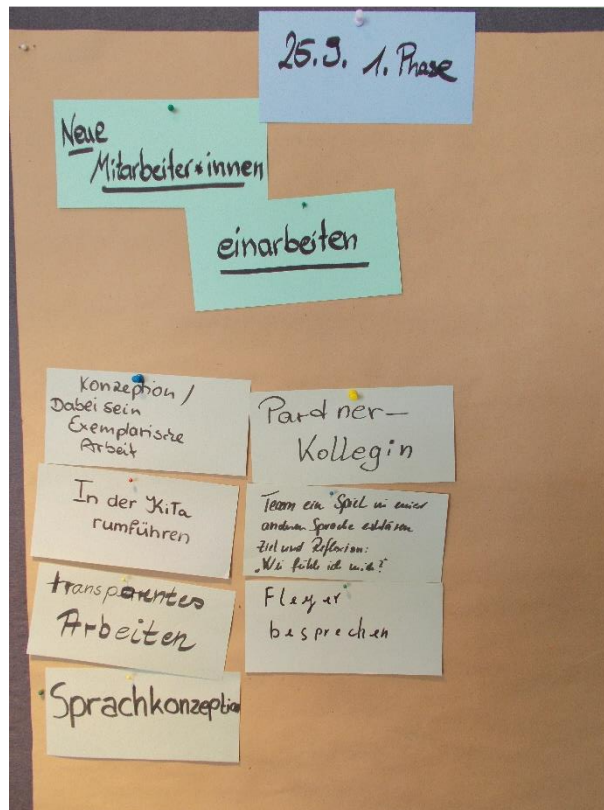 25.9. 1. Phase
Neue
Mitarbeiter*innen
einarbeiten
Konzeption /
Dabei sein
Exemplarische
Arbeit
In der KiTa
rumführen
transparentes
Arbeiten
Sprachkonzeption
Pardner-
Kollegin
Team ein Spiel in einer
anderen Sprache erklären
Ziel und Reflexion:
„Wie fühle ich mich?"
Flyer
besprechen